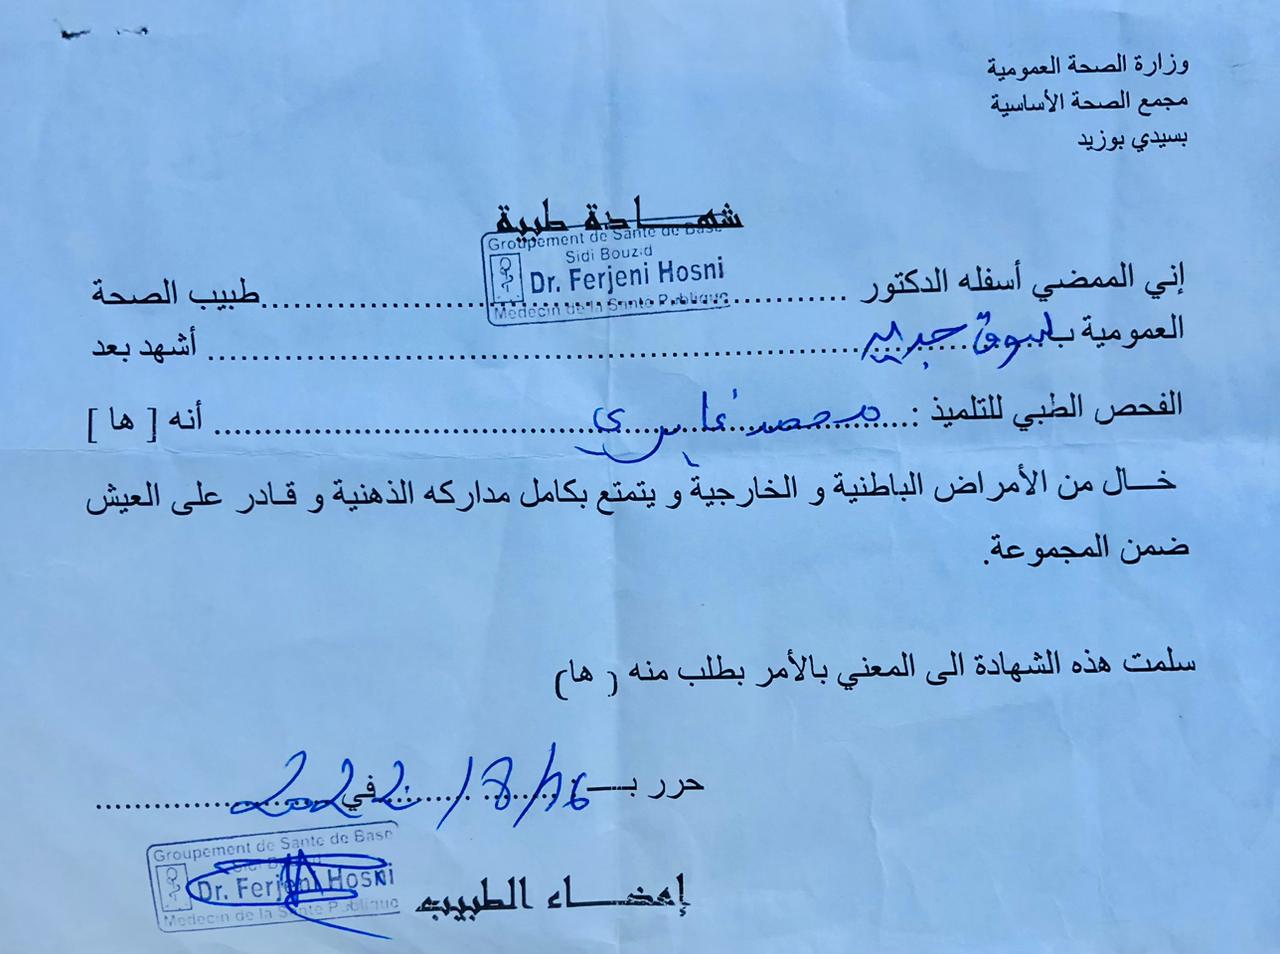 وزارة الصحة العمومية
مجمع الصحة الأساسية
بسيدي بوزيد
شهـــادة طبية
Groupement de Sante de Base
Sidi Bouzid
Dr. Ferjeni Hosni
Medecin de la Santé Publique
إني الممضي أسفله الدكتور ........................................ طبيب الصحة
العمومية بـ لسوق جديد ........................................ أشهد بعد
الفحص الطبي للتلميذ : محمد عابدي ........................................ أنه [ ها ]
خـــال من الأمراض الباطنية و الخارجية و يتمتع بكامل مداركه الذهنية و قادر على العيش
ضمن المجموعة.
سلمت هذه الشهادة الى المعني بالأمر بطلب منه ( ها)
حرر بـــ ............ في ............ 2022/8/16
Groupement de Sante de Base
Sidi Bouzid
Dr. Ferjeni Hosni
Medecin de la Sante Publique
إمضـــاء الطبيب